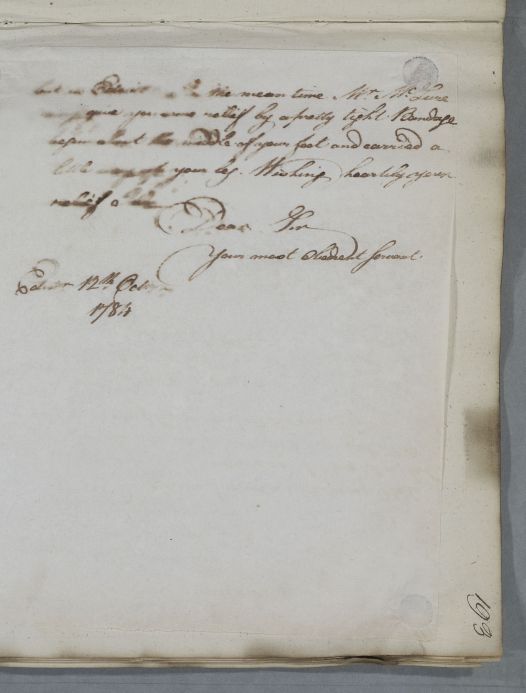 in the mean time Mr. McLure
give you some relief by a pretty tight Bandage
about the middle of your foot and carried a
little way up your leg. Wishing heartily your
relief
Dear Sir
Your most obedient servant.
12th Octor.
1784
193